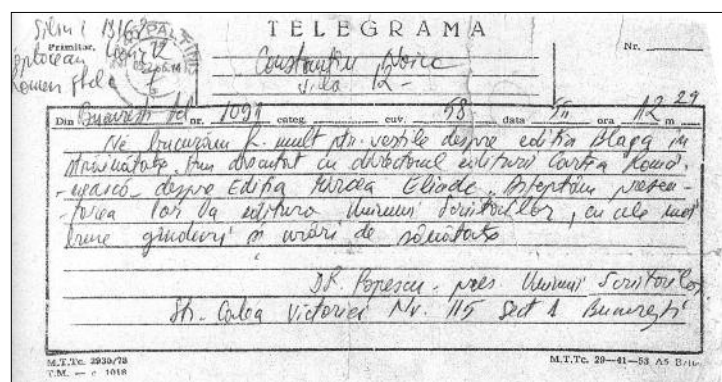 TELEGRAMA
Primitar,
Nr.
Constantin Noica
Vila 12 -
Din București nr. 1091 categ. cuv. 58 data ora 12 m 29
Ne bucurăm f. mult ptr. veștile despre ediția Blaga în
străinătate. Am discutat cu directorul editurii Cartea Româ-
-nească despre Ediția Mircea Eliade. Așteptăm prezen-
-tarea lor la editura Uniunii Scriitorilor, cu cele mai
bune gînduri și urări de sănătate
D.R. Popescu - pres Uniunii Scriitorilor
Str. Calea Victoriei Nr. 115 Sect 1 București
M.T.Tc. 2930/78
T.M. — c 1018
M.T.Tc. 29—41—53 A5